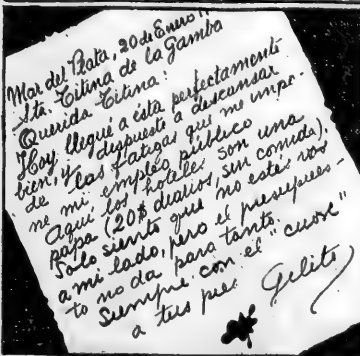 Mar del Plata, 20 de Enero
Sta. Titina de la Gamba
Querida Titina:
Hoy, llegué a ésta perfectamente
bien, y dispuesto a descansar
de las fatigas que me impo-
ne mi empleo público
Aquí los hoteles son una
papa (20$ diarios, sin comida).
Solo siento que no estés vos
a mi lado, pero el presupues-
to no da para tanto.
Siempre con el "cuore"
a tus pies
Gelito